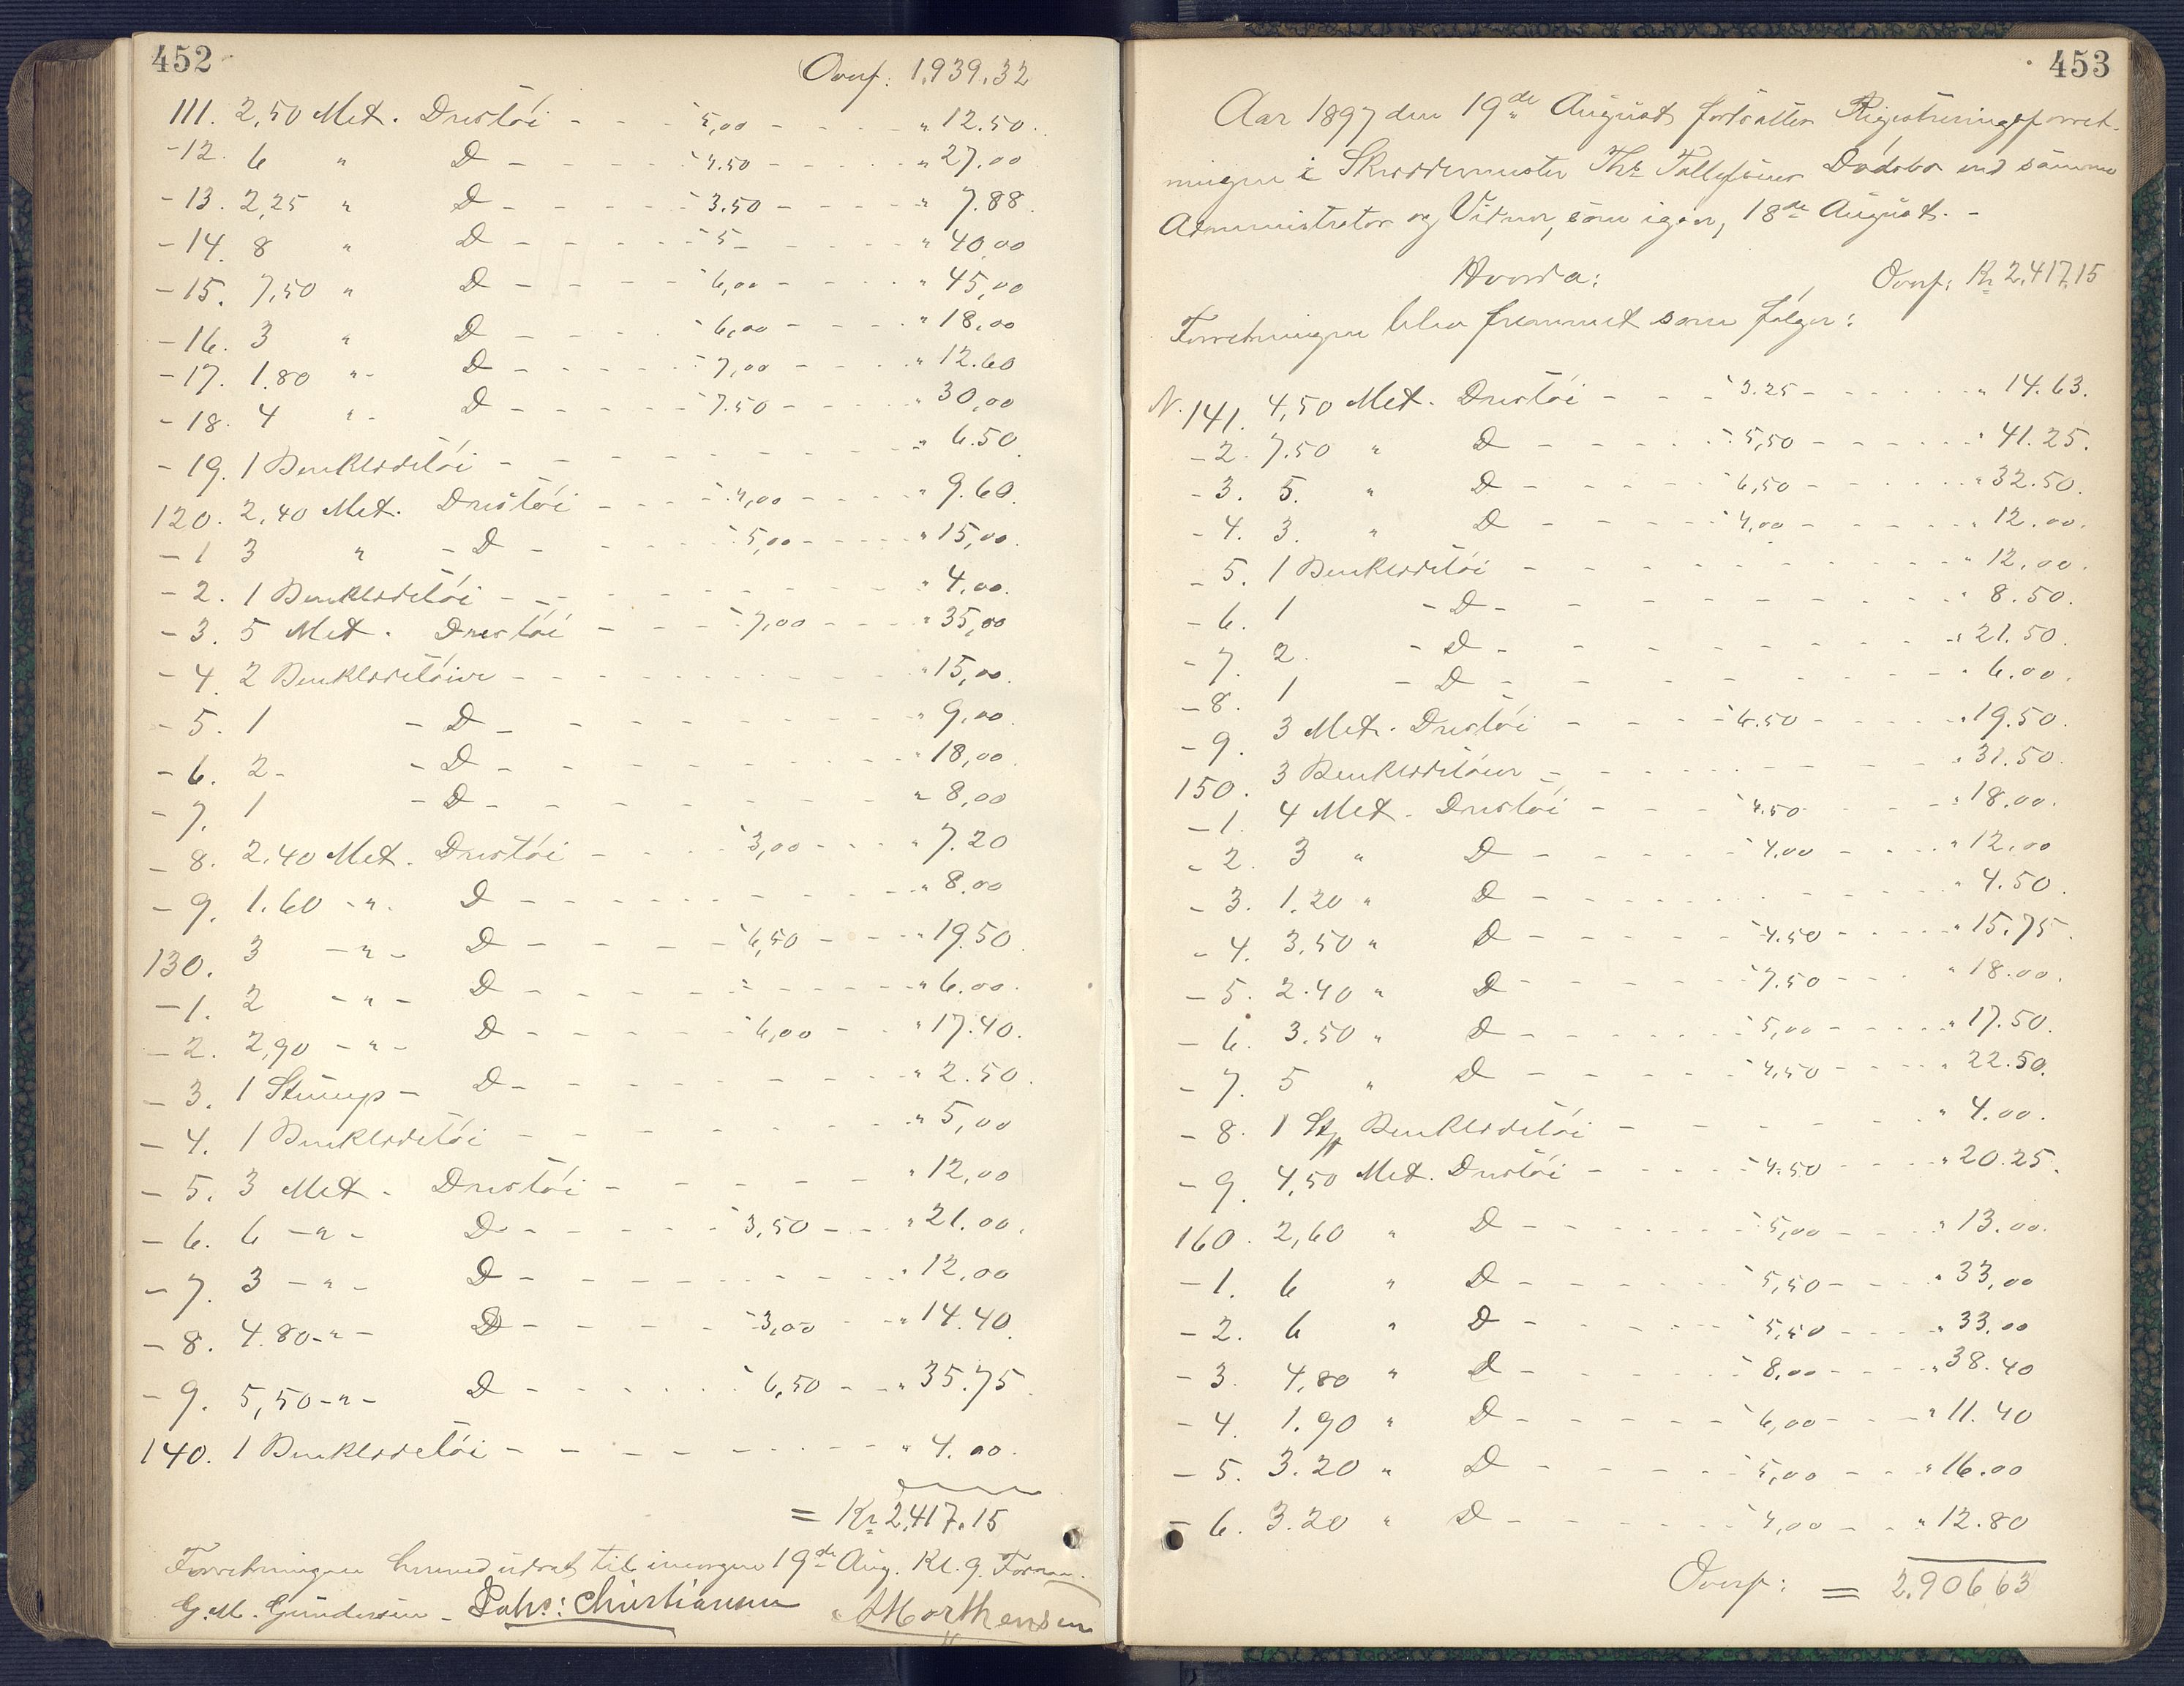 452
Overf: 1,939.32
111. 2,50 Met. Drestöi - - - 5,00 - - - - " 12.50.
-12. 6 " D - - - - 4.50 - - - - " 27.00
-13. 2,25 " D - - - - 3.50 - - - - " 7.88.
-14. 8 " D - - - - 5 - - - - " 40,00
-15. 7,50 " D - - - - 6,00 - - - - " 45,00
-16. 3 " D - - - - 6,00 - - - - " 18,00
-17. 1.80 " D - - - - 7,00 - - - - " 12.60
-18. 4 " D - - - - 7.50 - - - - " 30,00
-19. 1 Benklædetöi - - - - - - - - " 6.50.
120. 2,40 Met. Drestöi - - - 4,00 - - - - " 9.60.
-1 3 " - D - - - - 5,00 - - - - " 15,00.
-2. 1 Benklædetöi - - - - - - - - " 4,00.
-3. 5 Met. Drestöi - - - 7,00 - - - - " 35,00
-4. 2 Benklædetöier - - - - - - - - " 15,00.
-5. 1 - D - - - - - - - - " 9,00.
-6. 2 - - D - - - - - - - - " 18,00.
-7. 1 - D - - - - - - - - " 8,00
-8. 2,40 Met. Drestöi - - - 3,00 - - - " 7.20
-9. 1.60 - " - D - - - - - - - - " 8.00
130. 3 - " - D - - - - 6,50 - - - " 19.50.
-1. 2 - " - D - - - - - - - - " 6.00.
-2. 2,90 - " - D - - - - 6,00 - - - " 17.40.
-3. 1 Stump - D - - - - - - - - " 2.50.
-4. 1 Benklædetöi - - - - - - - - " 5,00
-5. 3 Met. Drestöi - - - - - - " 12,00
-6. 6 - " - D - - - - 3,50 - - - " 21.00.
-7. 3 - " - D - - - - - - - - " 12,00
-8. 4.80 - " - D - - - - 3,00 - - - " 14.40.
-9. 5,50 - " - D - - - - 6,50 - - - " 35.75.
140. 1 Benklædetöi - - - - - - - - " 4.00.
= Kr 2,417.15
Forretningen hermed udsat til imorgen 19de Aug. Kl. 9. Form.
G. M. Gundersen - Johs: Christiansen AMorthensen
453
Aar 1897 den 19de August fortsattes Registreringsforret-
ningen i Skreddermester Thr. Tallefsens Dødsbo ved samme
Administrator og Vidner, som igaar, 18de August. -
Hvorda: Overf: Kr 2,417,15
Forretningen blev fremmet som følger:
N. 141. 4,50 Met. Drestöi - - - 3.25 - - - - " 14.63.
-2. 7.50 " D - - - - 5,50 - - - - " 41.25.
-3. 5. " D - - - - 6,50 - - - - " 32.50.
-4. 3. " D - - - - 4,00 - - - - " 12.00.
-5. 1 Benklædetöi - - - - - - - - " 12,00.
-6. 1 - D - - - - - - - - " 8.50.
-7. 2. - D - - - - - - - - " 21.50.
-8. 1 - D - - - - - - - - " 6.00.
-9. 3 Met. Drestöi - - - 6.50 - - - - " 19.50.
150. 3 Benklædetöier - - - - - - - - " 31.50.
-1. 4 Met. Drestöi - - - 4.50 - - - - " 18.00.
-2. 3 " D - - - - 4,00 - - - - " 12,00
-3. 1.20 " D - - - - - - - - " 4.50.
-4. 3.50 " D - - - - 4.50 - - - - " 15.75.
-5. 2.40 " D - - - - 7.50 - - - " 18.00.
-6. 3.50 " D - - - - 5,00 - - - - " 17.50.
-7. 5 " D - - - - 4,50 - - - - " 22.50.
-8. 1 Stp Benklædetöi - - - - - - " 4.00.
-9. 4,50 Met. Drestöi - - - 4.50 - - - - " 20.25.
160. 2,60 " D - - - - 5,00 - - - " 13.00.
-1. 6 " D - - - - 5,50 - - - - " 33,00
-2. 6 " D - - - - 5,50 - - - - " 33,00
-3. 4,80 " D - - - - 8,00 - - - - " 38.40
-4. 1.90 " D - - - - 6,00 - - - - " 11.40
-5. 3.20 " D - - - - 5,00 - - - " 16.00
-6. 3.20 " D - - - - 4,00 - - - " 12.80
Overf: = 2.906,63